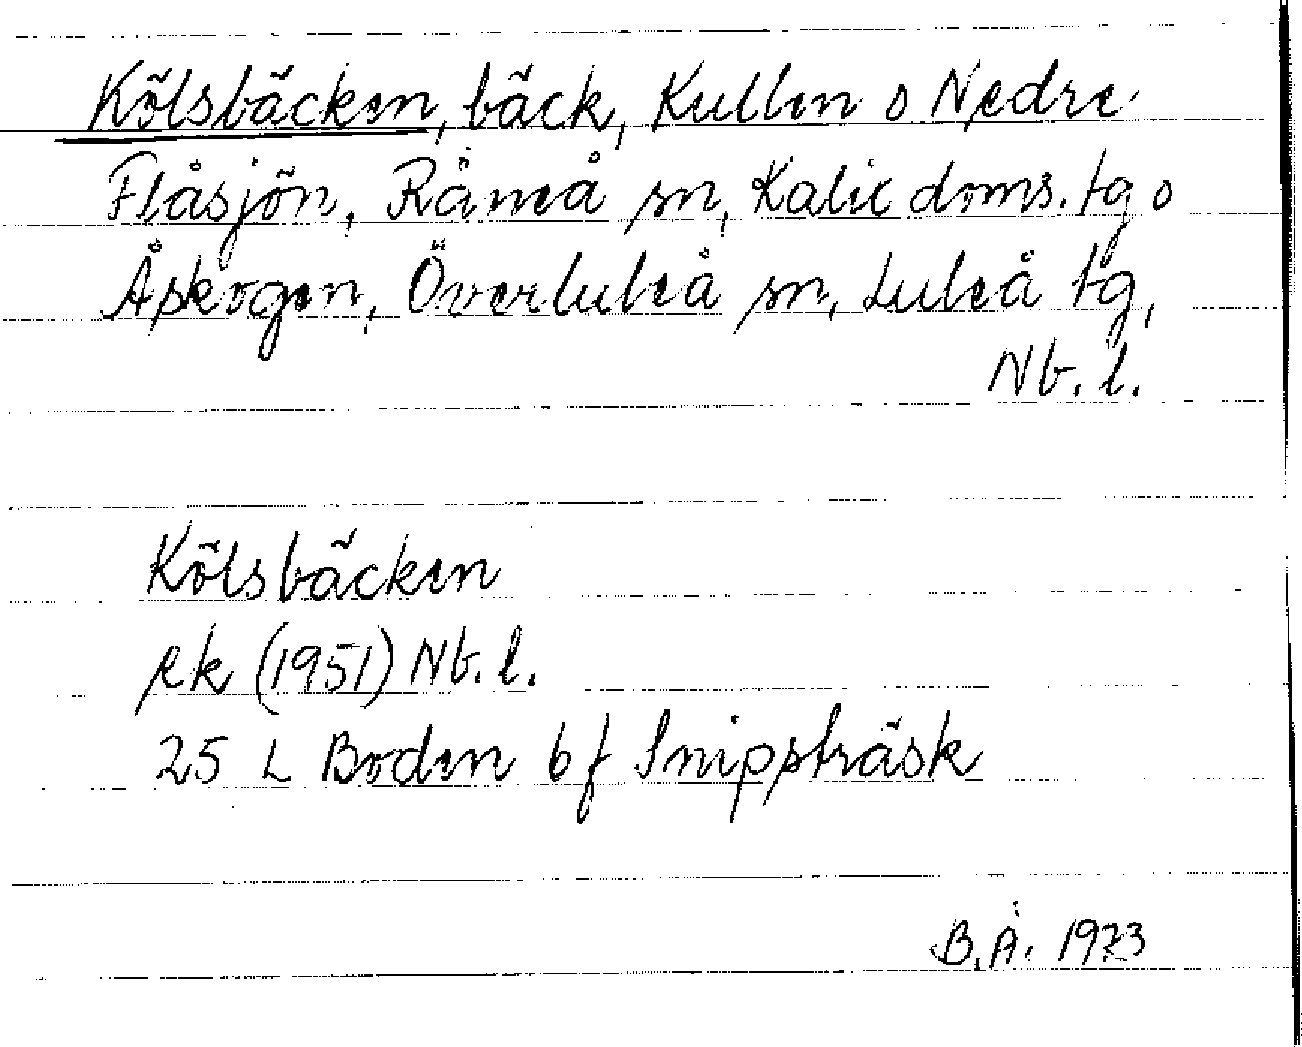 Kölsbäcken, bäck, Kullen o Nedre
Flåsjön, Råneå sn, Kalix doms. tg o
Åskogen, Överluleå sn, Luleå tg,
Nb. l.
Kölsbäcken
ek (1951) Nb. l.
25 L Boden bf Snippträsk
B.Å. 1973